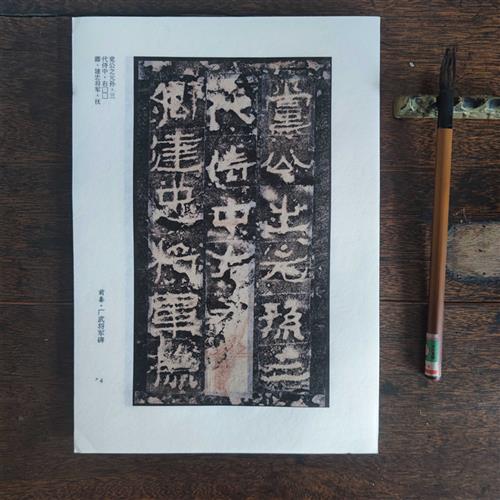 黨公之元孫三
代侍中右
卿建忠將軍撫
党公之元孙·三
代侍中·右□□
卿·建忠将军·抚
前秦·广武将军碑
4